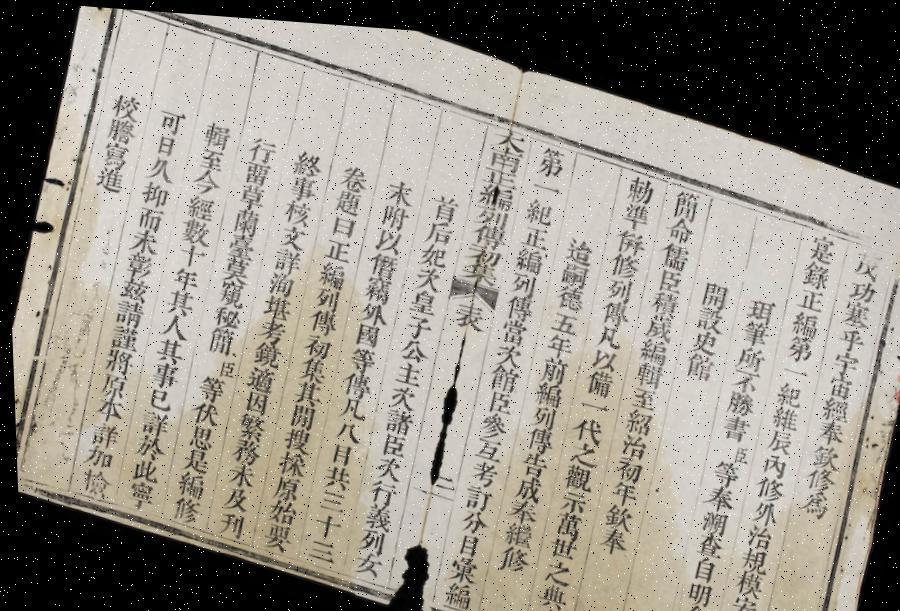 功塞乎宇宙經奉 欽修爲
寔錄正編第一紀維辰內修外治規模宏
珥筆所不勝書 臣等奉溯查自明
開設史館
簡命儒臣積歲編輯至紹治初年欽奉
勅準併修列傳凡以備一代之觀示萬世之典
迨嗣德五年前編列傳告成奉繼修
第一紀正編列傳當次館臣參互考訂分目彙編
大南正編列傳初集 表 二
首后妃次皇子公主次諸臣次行義列女
末附以僭竊外國等傳凡八目共三十三
卷題曰正編列傳初集其開搜採原始要
終事核文詳洵堪考鏡適因繁務未及刊
行留草蘭臺藏窺秘簡 臣等伏思是編修
輯至今經數十年其人其事已詳於此寧
可日久抑而未彰玆請謹將原本詳加檢
校謄寫進